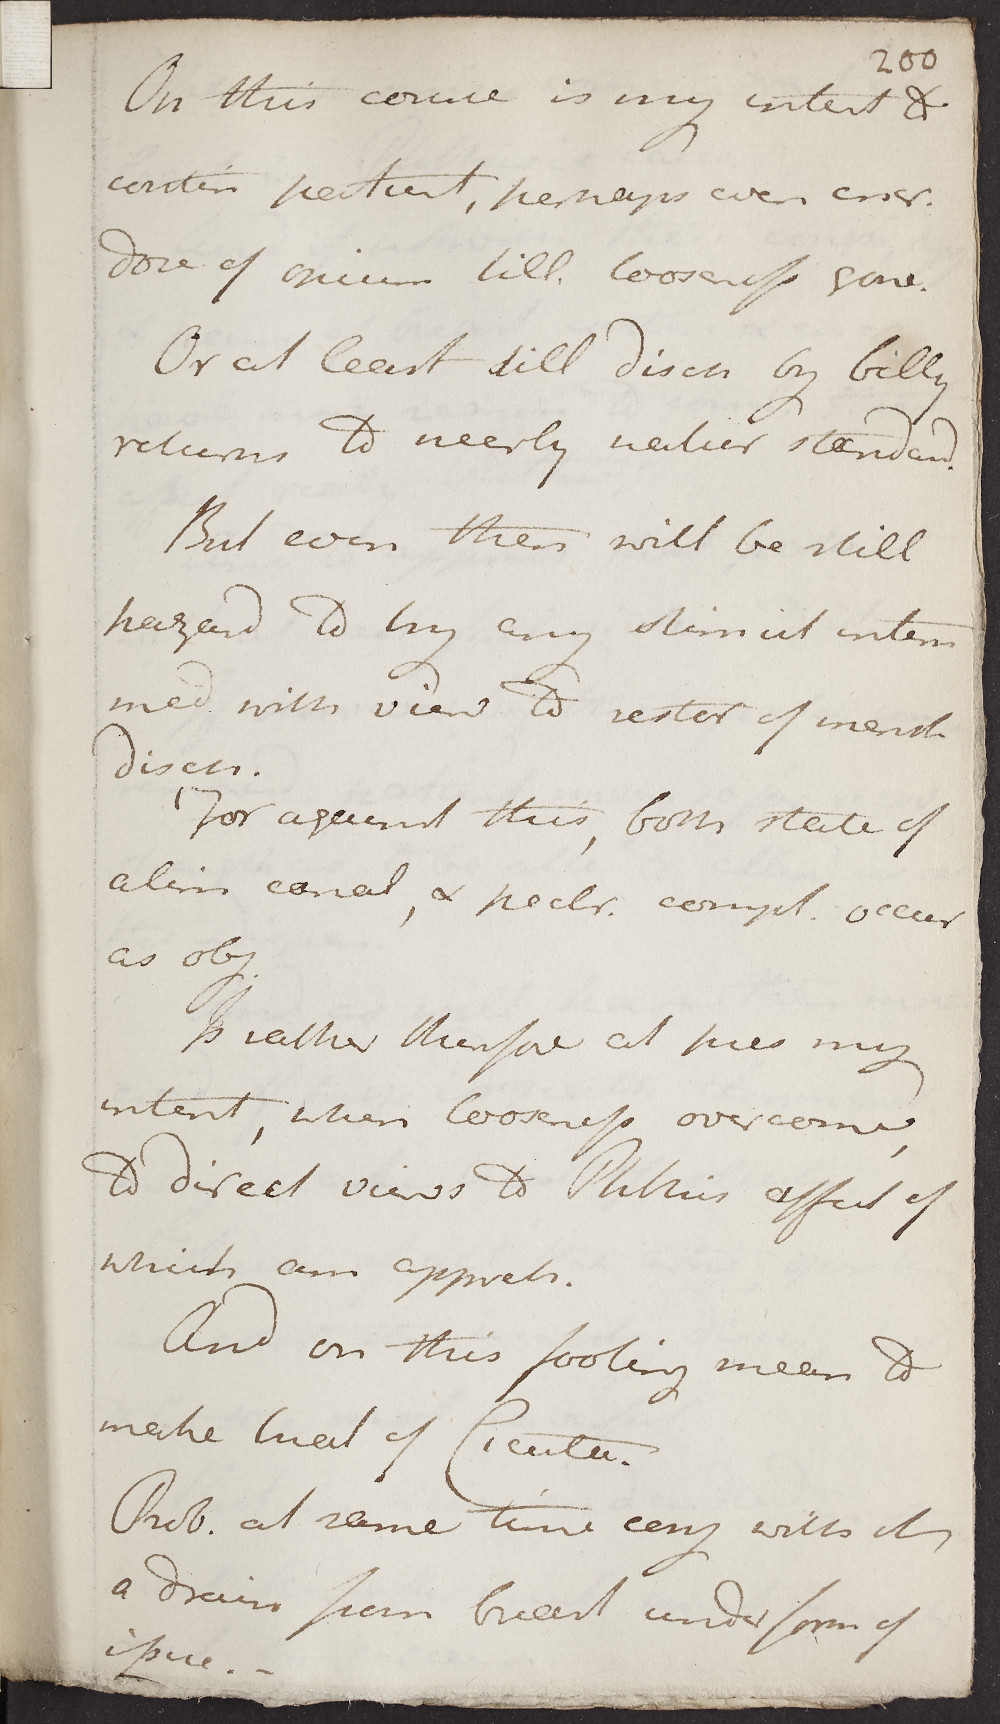 200
On this course is my intent to
contin patient, perhaps even encr.
dose of opium till looseness gone.
Or at least till disch by belly
returns to nearly natur standard.
But even then will be still
hazard to try any stimul intern
med with view to restor of menst
disch.
For against this, both state of
alim canal, & pectr. compl. occur
as obj.
Is rather therefore at pres my
intent, when looseness overcome,
to direct views to Phthis affect of
which am appreh.
And on this footing mean to
make trial of Cicuta.
Prob. at same time conj with it
a drain from breast under form of
issue. -